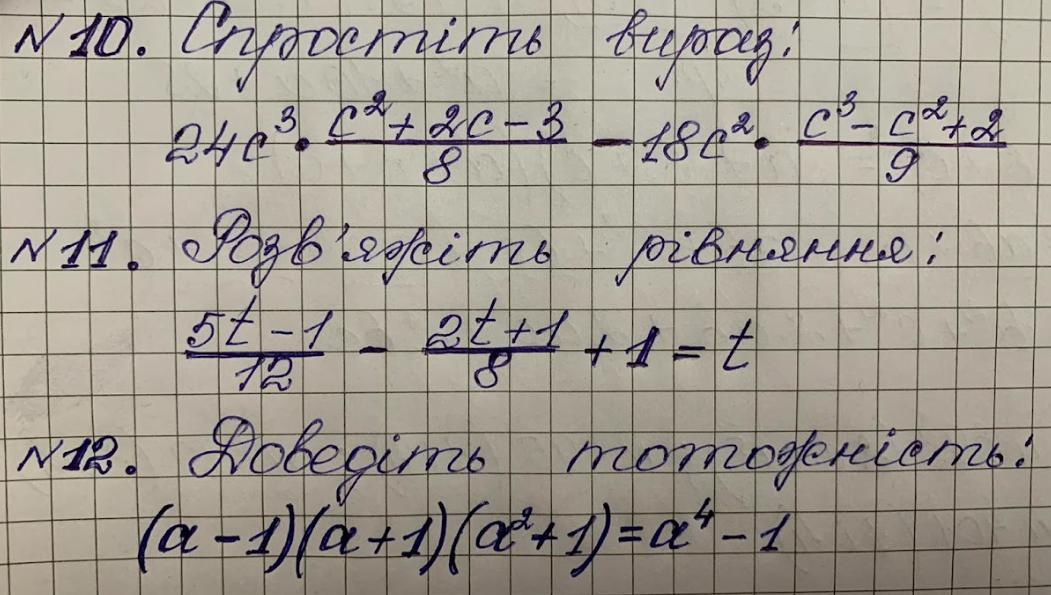 №10. Спростіть вираз:
24c³ · (c² + 2c − 3)/8 − 18c² · (c³ − c² + 2)/9
№11. Розв'яжіть рівняння:
(5t − 1)/12 − (2t + 1)/8 + 1 = t
№12. Доведіть тотожність:
(a − 1)(a + 1)(a² + 1) = a⁴ − 1